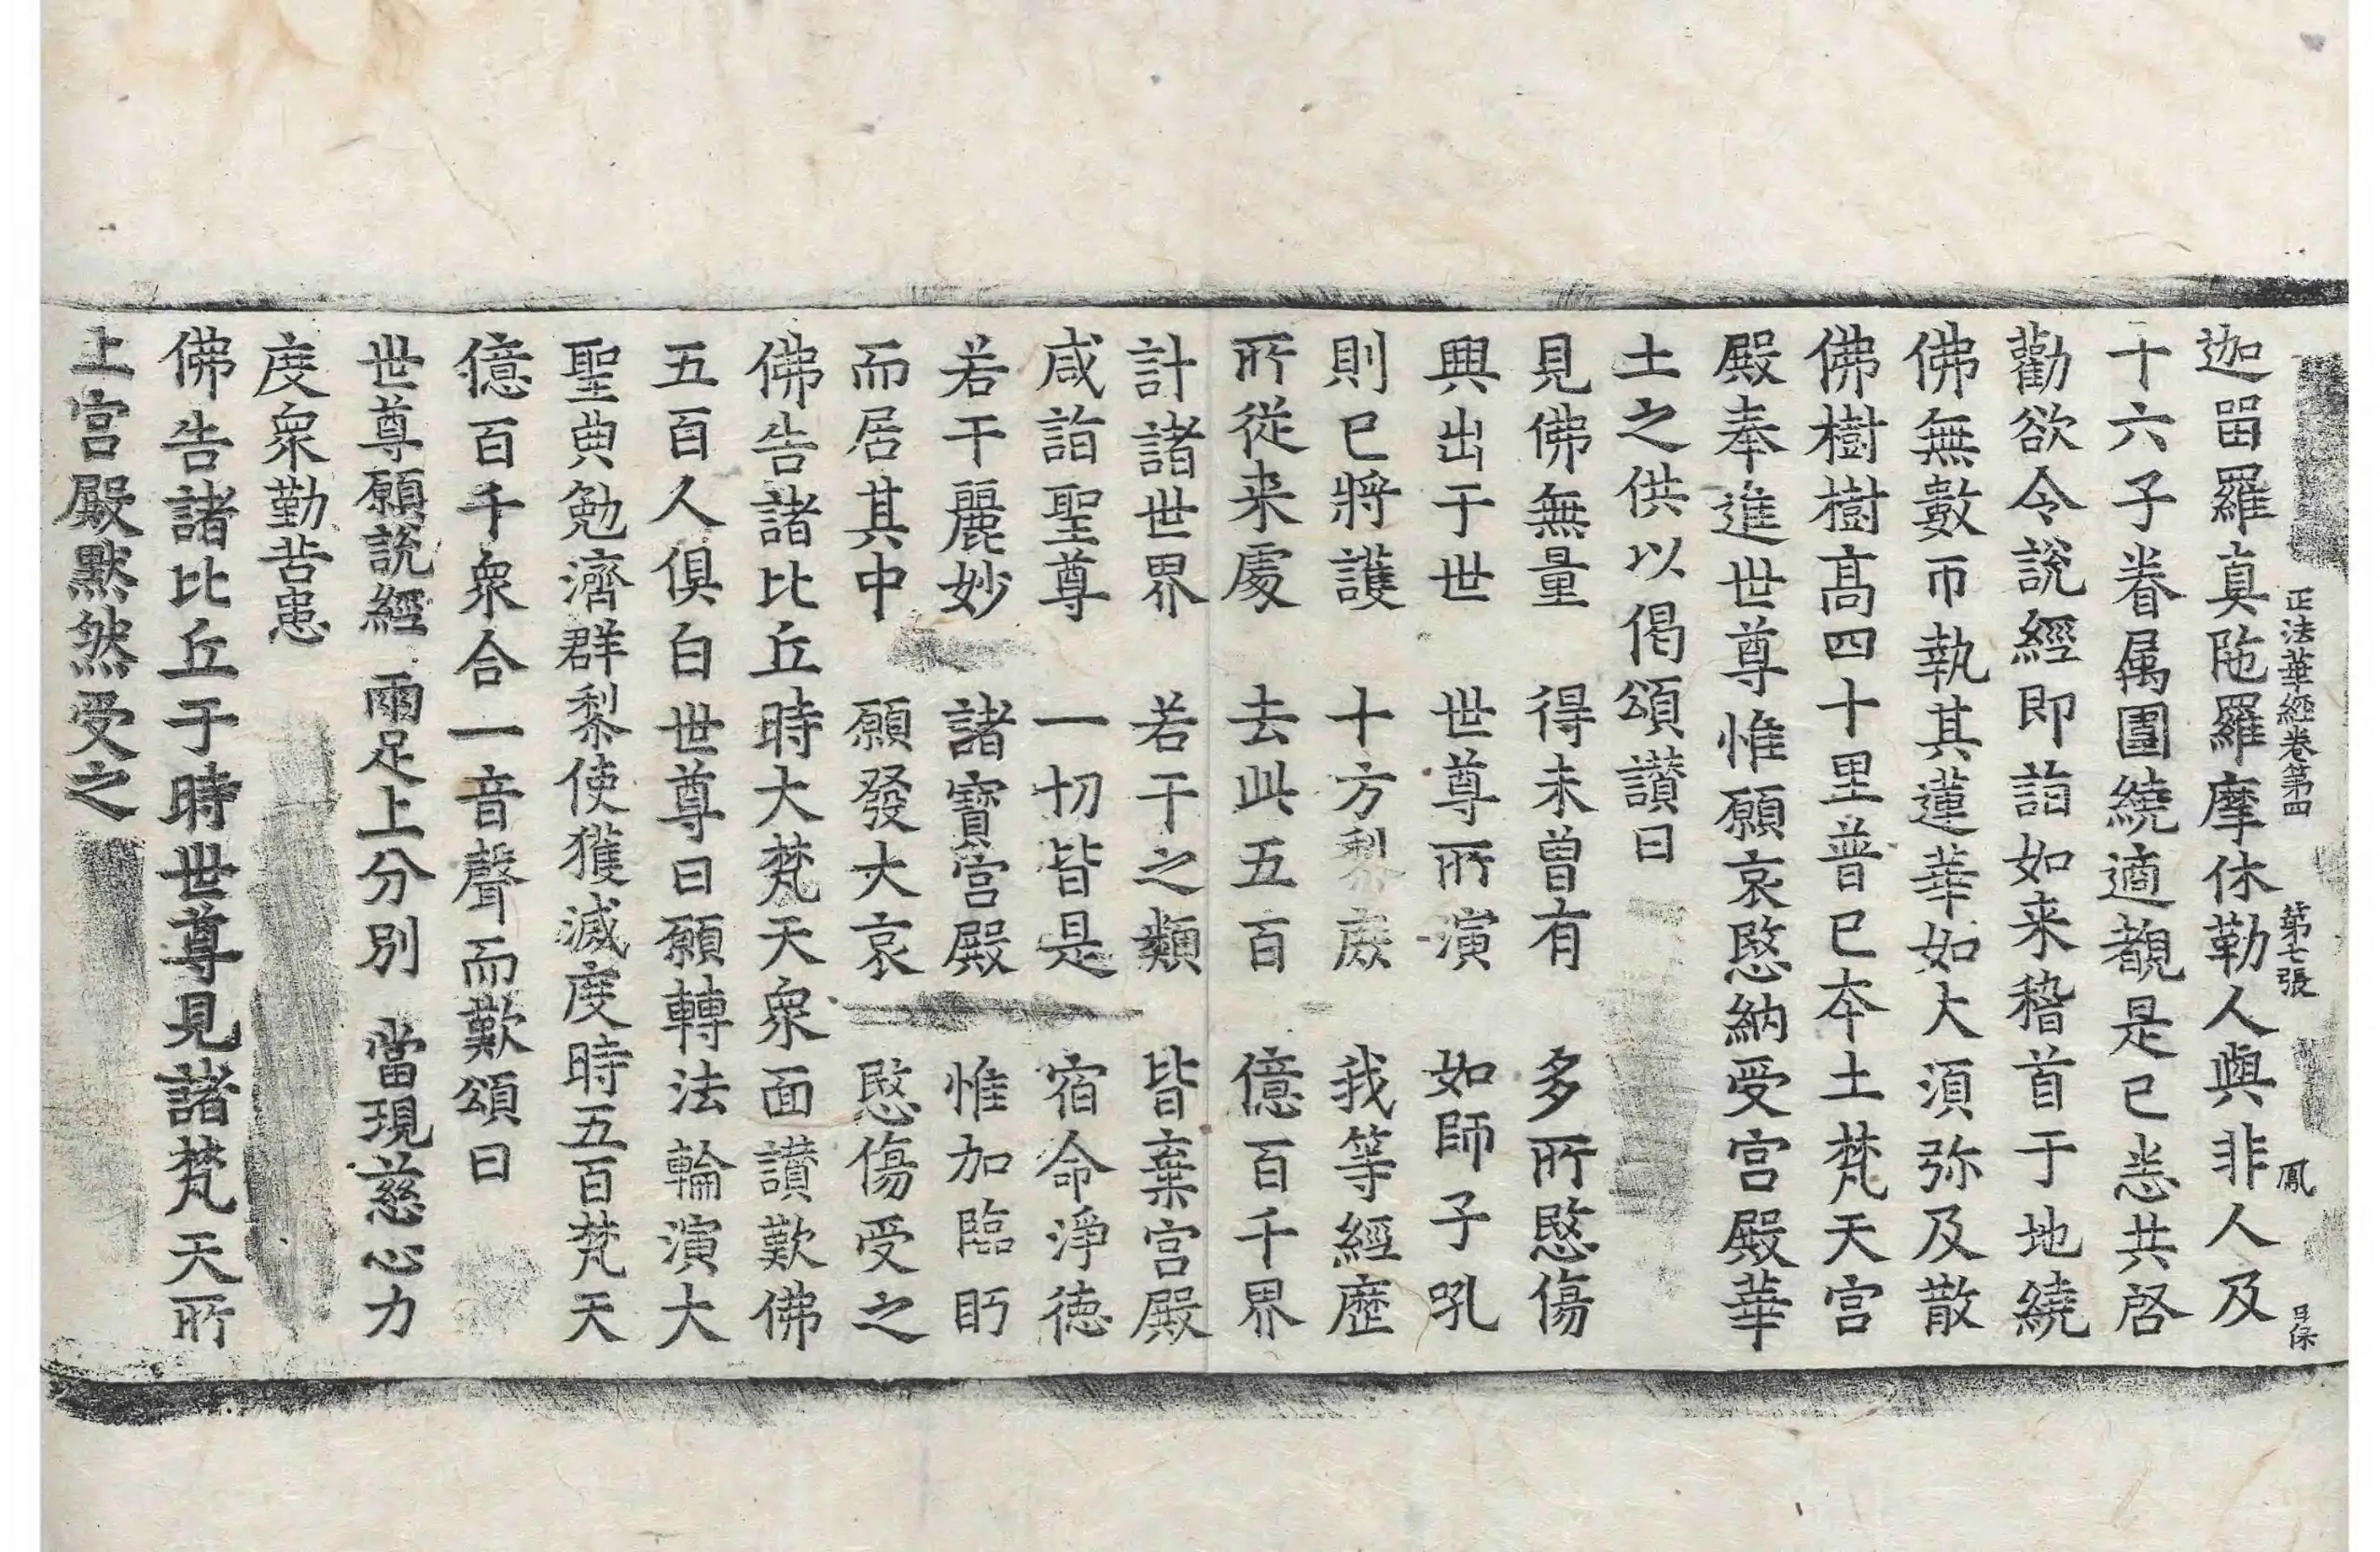 正法華經卷第四 第七張 鳳 日保
迦留羅真陁羅摩休勒人與非人及
十六子眷属圍繞適覩是已恙共啓
勸欲令說經即詣如来稽首于地繞
佛無數帀執其蓮華如大湏弥及散
佛樹樹髙四十里普已夲土梵天宫
殿奉進世尊惟願哀愍納受宫殿華
土之供以偈頌讃曰
見佛無量 得未曾有 多所愍傷
興出于世 世尊所演 如師子吼
則已將護 十方黎庻 我等經歷
所從来處 去此五百 億百千界
計諸世界 若干之類 皆棄宫殿
咸詣聖尊 一切皆是 宿命淨德
若干麗妙 諸寶宫殿 惟加臨眄
而居其中 願發大哀 愍傷受之
佛告諸比丘時大梵天衆面讃歎佛
五百人俱白世尊曰願轉法輪演大
聖典勉濟群黎使獲滅度時五百梵天
億百千衆合一音聲而歎頌曰
世尊願説經 兩足上分別 當現慈心力
度衆勤苦患
佛告諸比丘于時世尊見諸梵天所
上宫殿黙然受之